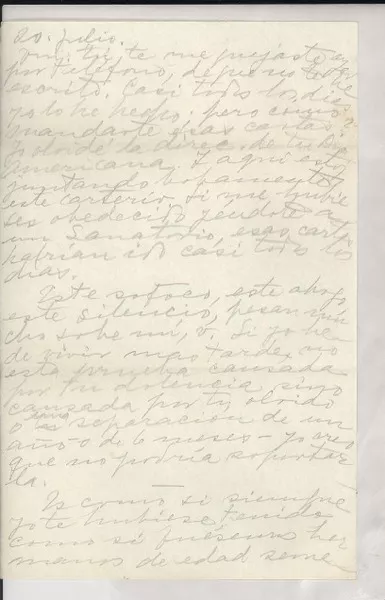 20. julio.
tú, te me quejaste ayer
por teléfono, de que no te he
escrito. Casi todos los días
yo lo he hecho; pero cómo
mandarte esas cartas?
Yo olvidé la direc. de tu
Americana. Y aquí está
juntando bobamente
este carterío. Si me hubie
ses obedecido yéndote a
un Sanatorio, esas cartas
habrían ido casi todos los
días.
Este sofoco, este ahogo,
este silencio, pesan mu
cho sobre mí, v. Si yo he
de vivir más tarde, no
esta prueba causada
por tu dolencia, sino
causada por tu olvido
o separación de un
año o de 6 meses - yo creo
que no podría soportar
la.
Es como si siempre
yo te hubiese tenido
como si fuésemos her
manos de edad seme